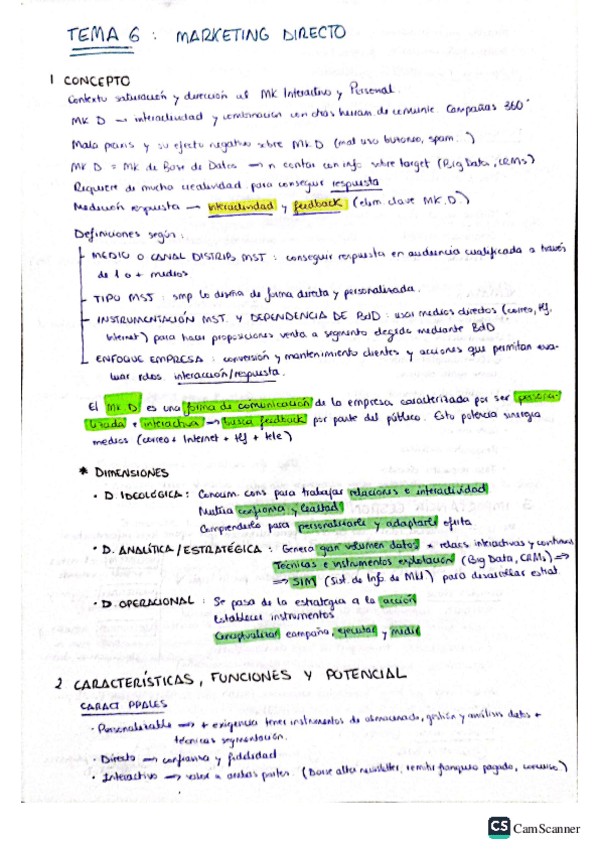 TEMA 6 : MARKETING DIRECTO
1 CONCEPTO
Contexto saturación y dirección al MK Interactivo y Personal.
MK D → interactividad y combinación con otras herram. de comunic. Campañas 360°
Mala praxis y su efecto negativo sobre MK D (mal uso buzoneo, spam..)
MK D = MK de Base de Datos → n contar con info sobre target (Big Data, CRMs)
Requiere de mucha creatividad para conseguir respuesta
Medición respuesta → interactividad y feedback (elem clave MK.D)
Definiciones según:
MEDIO O CANAL DISTRIB. MST : conseguir respuesta en audiencia cualificada a través
de 1 o + medios
TIPO MST : smp lo diseña de forma directa y personalizada.
INSTRUMENTACIÓN MST. Y DEPENDENCIA DE BdD : usar medios directos (correo, tlf,
Internet) para hacer proposiciones venta a segmento elegido mediante BdD
ENFOQUE EMPRESA : conversión y mantenimiento clientes y acciones que permitan eva-
luar rdos. interacción/respuesta.
El MK D es una forma de comunicación de la empresa caracterizada por ser persona-
lizada + interactiva → busca feedback por parte del público. Esto potencia sinergia
medios (correo + Internet + tlf + tele)
* DIMENSIONES
· D. IDEOLÓGICA : Conocim. cons para trabajar relaciones e interactividad
Mutua confianza y lealtad
Comprenderlo para personalizarle y adaptarle oferta
· D. ANALÍTICA / ESTRATÉGICA : Genera gran volumen datos + relacs interactivas y continuas
Técnicas e instrumentos explotación (Big Data, CRMs) ⇒
⇒ SIM (Sist. de Info de MK) para desarrollar estrat.
· D. OPERACIONAL : Se pasa de la estrategia a la acción
Establecer instrumentos
Conceptualizar campaña, ejecutar y medir
2 CARACTERÍSTICAS, FUNCIONES Y POTENCIAL
CARACT PPALES
· Personalizable → + exigencia tener instrumentos de almacenado, gestión y análisis datos +
técnicas segmentación.
· Directo → confianza y fidelidad
· Interactivo → valor a ambas partes. (Darse alta newsletter, remite franqueo pagado, concurso.)
CS CamScanner